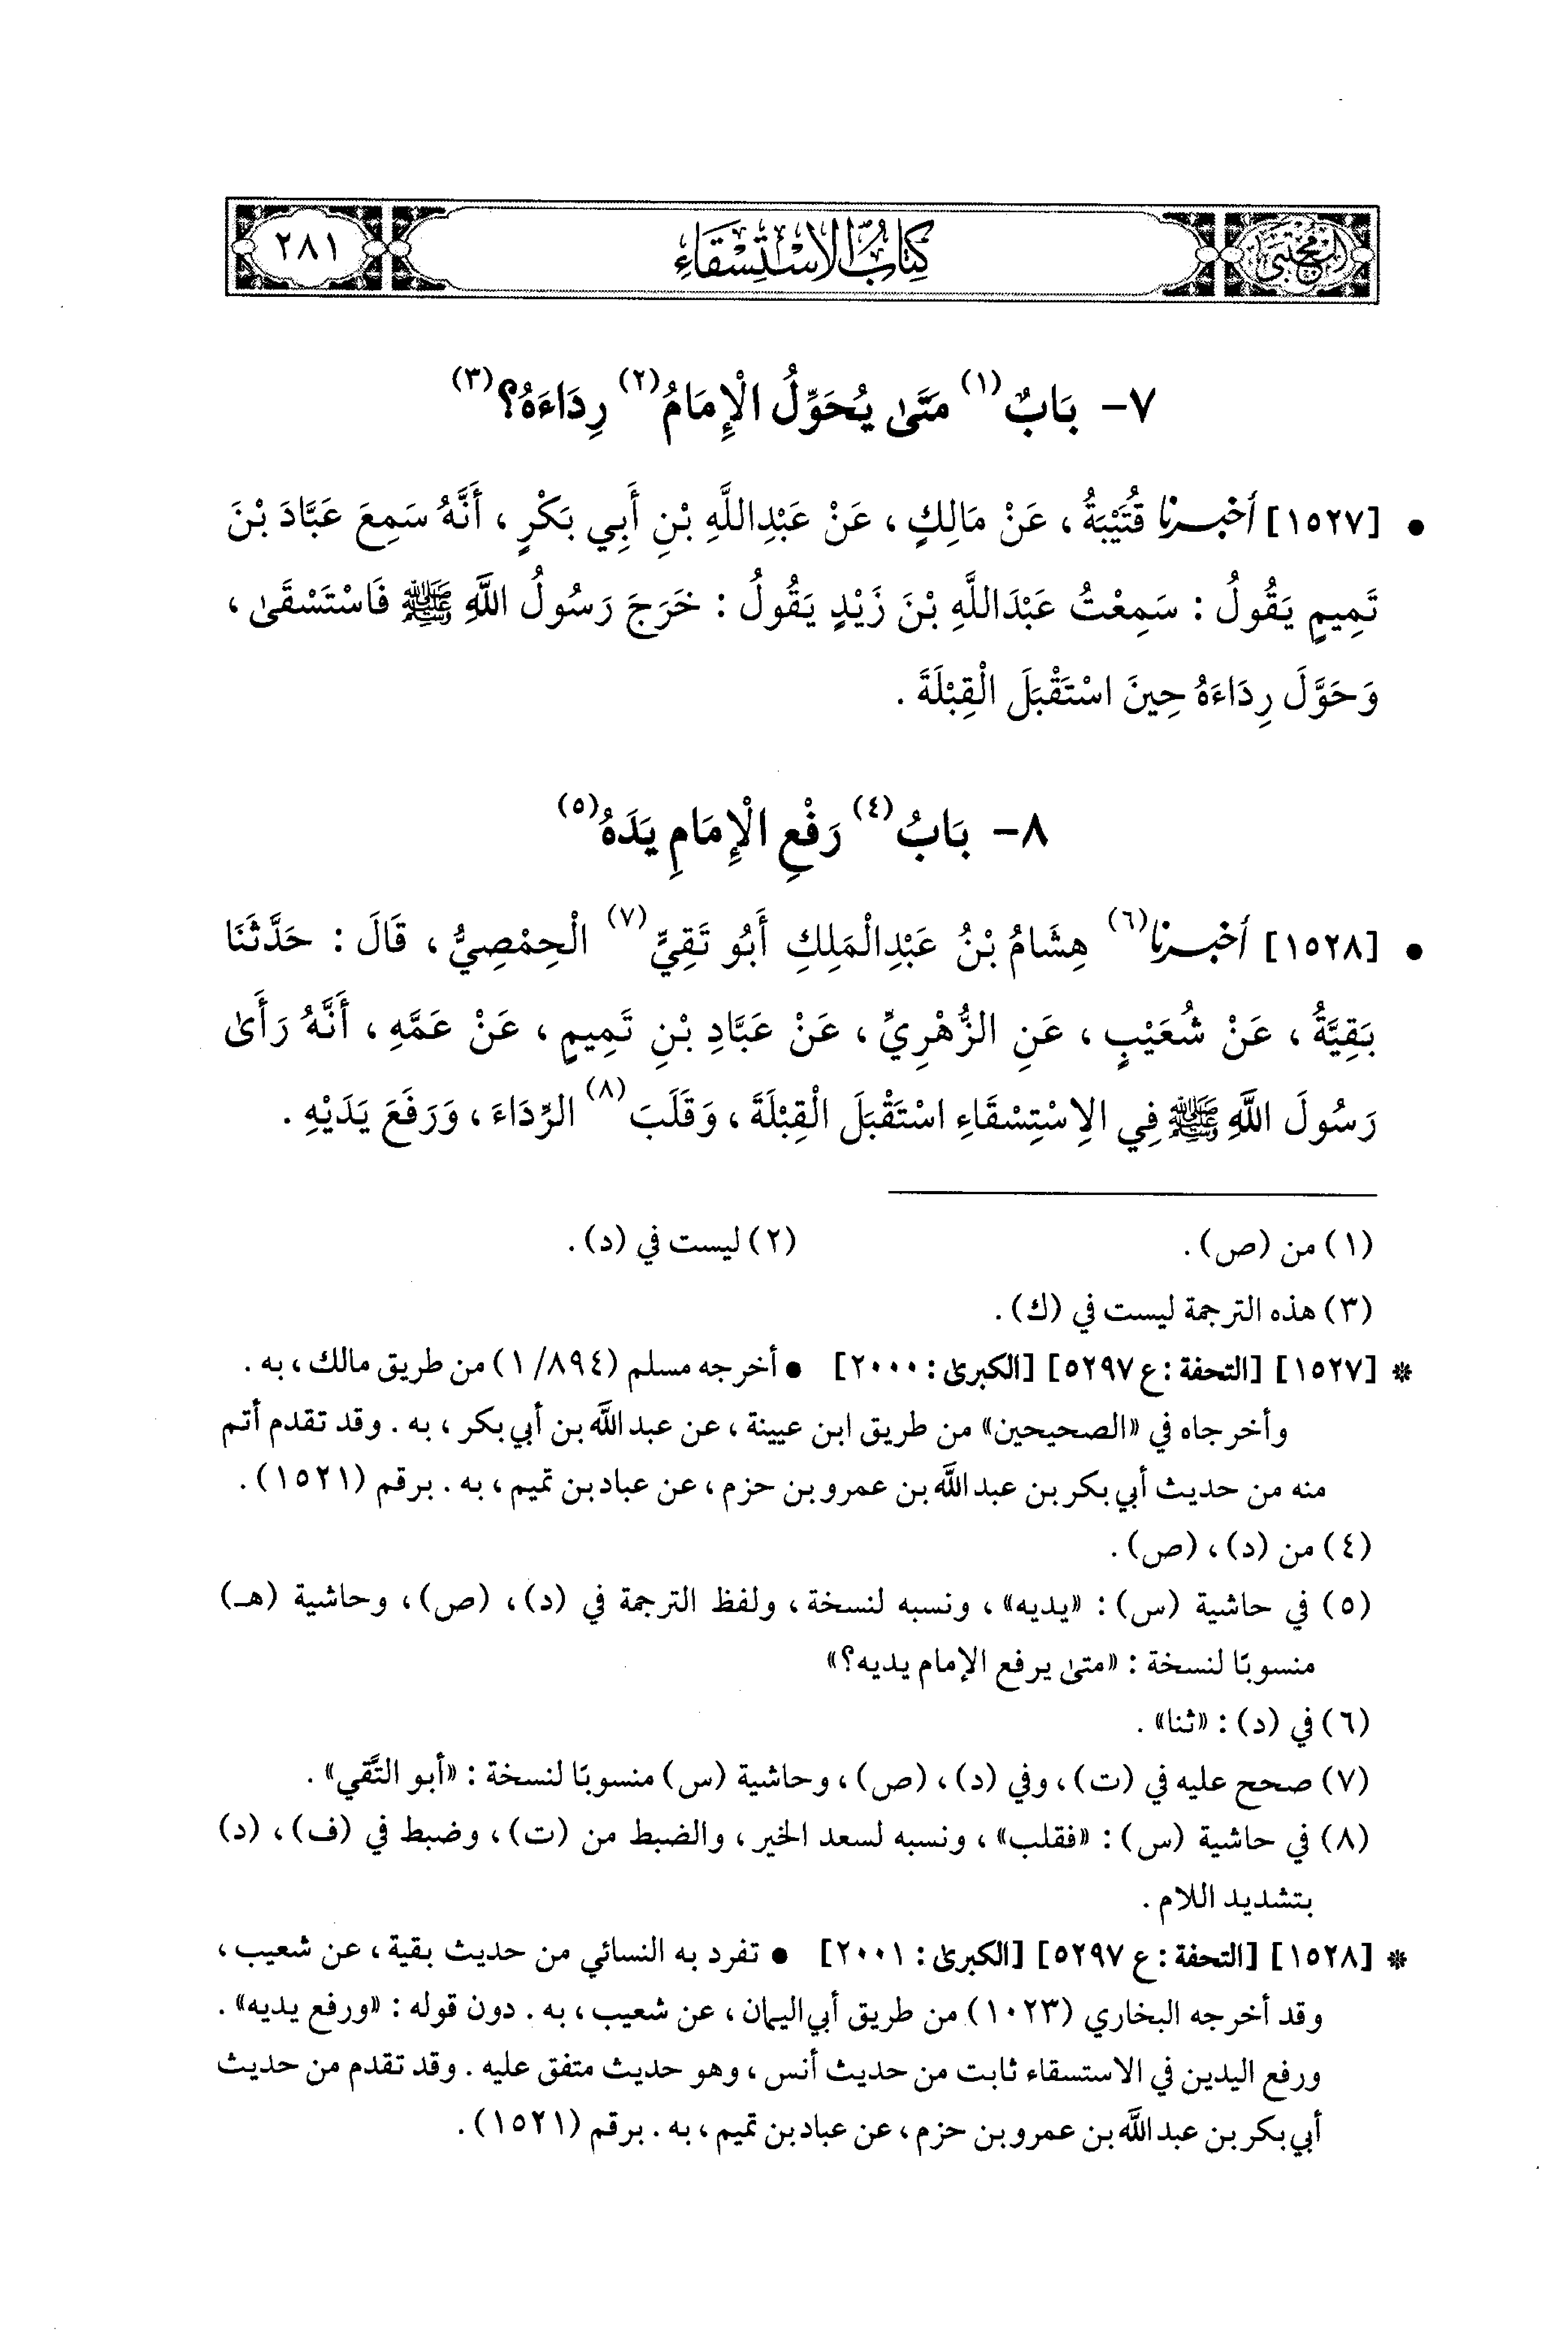 المجتبى
كِتَابُ الِاسْتِسْقَاءِ
٢٨١
٧- بَابٌ(١) مَتَىٰ يُحَوِّلُ الْإِمَامُ(٢) رِدَاءَهُ؟(٣)
• [١٥٢٧] أخبرنا قُتَيْبَةُ، عَنْ مَالِكٍ، عَنْ عَبْدِاللَّهِ بْنِ أَبِي بَكْرٍ، أَنَّهُ سَمِعَ عَبَّادَ بْنَ
تَمِيمٍ يَقُولُ: سَمِعْتُ عَبْدَاللَّهِ بْنَ زَيْدٍ يَقُولُ: خَرَجَ رَسُولُ اللَّهِ ﷺ فَاسْتَسْقَىٰ،
وَحَوَّلَ رِدَاءَهُ حِينَ اسْتَقْبَلَ الْقِبْلَةَ.
٨- بَابُ(٤) رَفْعِ الْإِمَامِ يَدَهُ(٥)
• [١٥٢٨] أخبرنا(٦) هِشَامُ بْنُ عَبْدِالْمَلِكِ أَبُو تَقِيٍّ(٧) الْحِمْصِيُّ، قَالَ: حَدَّثَنَا
بَقِيَّةُ، عَنْ شُعَيْبٍ، عَنِ الزُّهْرِيِّ، عَنْ عَبَّادِ بْنِ تَمِيمٍ، عَنْ عَمِّهِ، أَنَّهُ رَأَىٰ
رَسُولَ اللَّهِ ﷺ فِي الِاسْتِسْقَاءِ اسْتَقْبَلَ الْقِبْلَةَ، وَقَلَبَ(٨) الرِّدَاءَ، وَرَفَعَ يَدَيْهِ.
(١) من (ص). (٢) ليست في (د).
(٣) هذه الترجمة ليست في (ك).
* [١٥٢٧] [التحفة: ع ٥٢٩٧] [الكبرىٰ: ٢٠٠٠] • أخرجه مسلم (١/٨٩٤) من طريق مالك، به.
وأخرجاه في «الصحيحين» من طريق ابن عيينة، عن عبداللَّه بن أبي بكر، به. وقد تقدم أتم
منه من حديث أبي بكر بن عبداللَّه بن عمرو بن حزم، عن عباد بن تميم، به. برقم (١٥٢١).
(٤) من (د)، (ص).
(٥) في حاشية (س): «يديه»، ونسبه لنسخة، ولفظ الترجمة في (د)، (ص)، وحاشية (هـ)
منسوبًا لنسخة: «متىٰ يرفع الإمام يديه؟»
(٦) في (د): «ثنا».
(٧) صحح عليه في (ت)، وفي (د)، (ص)، وحاشية (س) منسوبًا لنسخة: «أبو التَّقي».
(٨) في حاشية (س): «فقلب»، ونسبه لسعد الخير، والضبط من (ت)، وضبط في (ف)، (د)
بتشديد اللام.
* [١٥٢٨] [التحفة: ع ٥٢٩٧] [الكبرىٰ: ٢٠٠١] • تفرد به النسائي من حديث بقية، عن شعيب،
وقد أخرجه البخاري (١٠٢٣) من طريق أبي اليمان، عن شعيب، به. دون قوله: «ورفع يديه».
ورفع اليدين في الاستسقاء ثابت من حديث أنس، وهو حديث متفق عليه. وقد تقدم من حديث
أبي بكر بن عبداللَّه بن عمرو بن حزم، عن عباد بن تميم، به. برقم (١٥٢١).